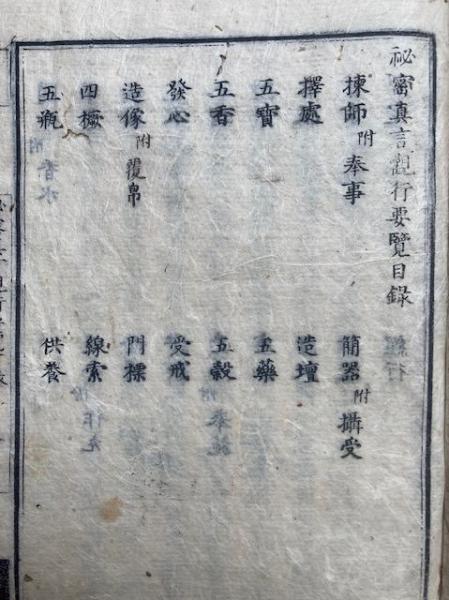 祕密真言觀行要覽目錄
揀師附奉事
簡器附攝受
擇處
造壇
五寶
五藥
五香
五穀
發心
受戒
造像附覆帛
門標
四橛
線索
五瓶
供養